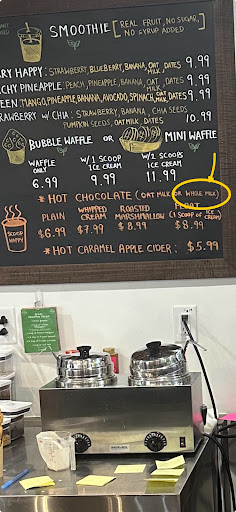 SMOOTHIE [REAL FRUIT, NO SUGAR,
NO SYRUP ADDED]
RY HAPPY: STRAWBERRY, BLUEBERRY, BANANA, OAT MILK, DATES 9.99
CHY PINEAPPLE: PEACH, PINEAPPLE, BANANA, OAT MILK, DATES 9.99
EEN: MANGO, PINEAPPLE, BANANA, AVOCADO, SPINACH, OAT MILK, DATES 9.99
RAWBERRY W/ CHIA: STRAWBERRY, BANANA, CHIA SEEDS
PUMPKIN SEEDS, OAT MILK, DATES 10.99
BUBBLE WAFFLE OR MINI WAFFLE
WAFFLE ONLY W/1 SCOOP ICE CREAM W/1 SCOOPS ICE CREAM
6.99 9.99 11.99
*HOT CHOCOLATE (OAT MILK OR WHOLE MILK)
PLAIN WHIPPED CREAM ROASTED MARSHMALLOW FLOAT (1 SCOOP OF ICE CREAM)
$6.99 $7.99 $8.99 $8.99
SCOOP HAPPY
*HOT CARAMEL APPLE CIDER: $5.99